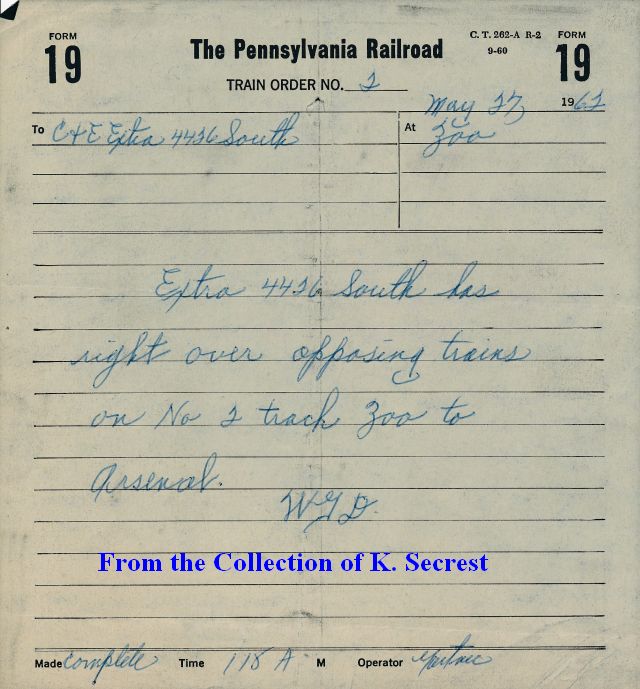 FORM
19
The Pennsylvania Railroad
C. T. 262-A R-2
9-60
FORM
19
TRAIN ORDER NO. 2
May 27, 1962
To C&E Extra 4426 South
At Zoo
Extra 4426 South has
right over opposing trains
on No 2 track Zoo to
Arsenal.
WGD.
From the Collection of K. Secrest
Made complete Time 118 A M Operator